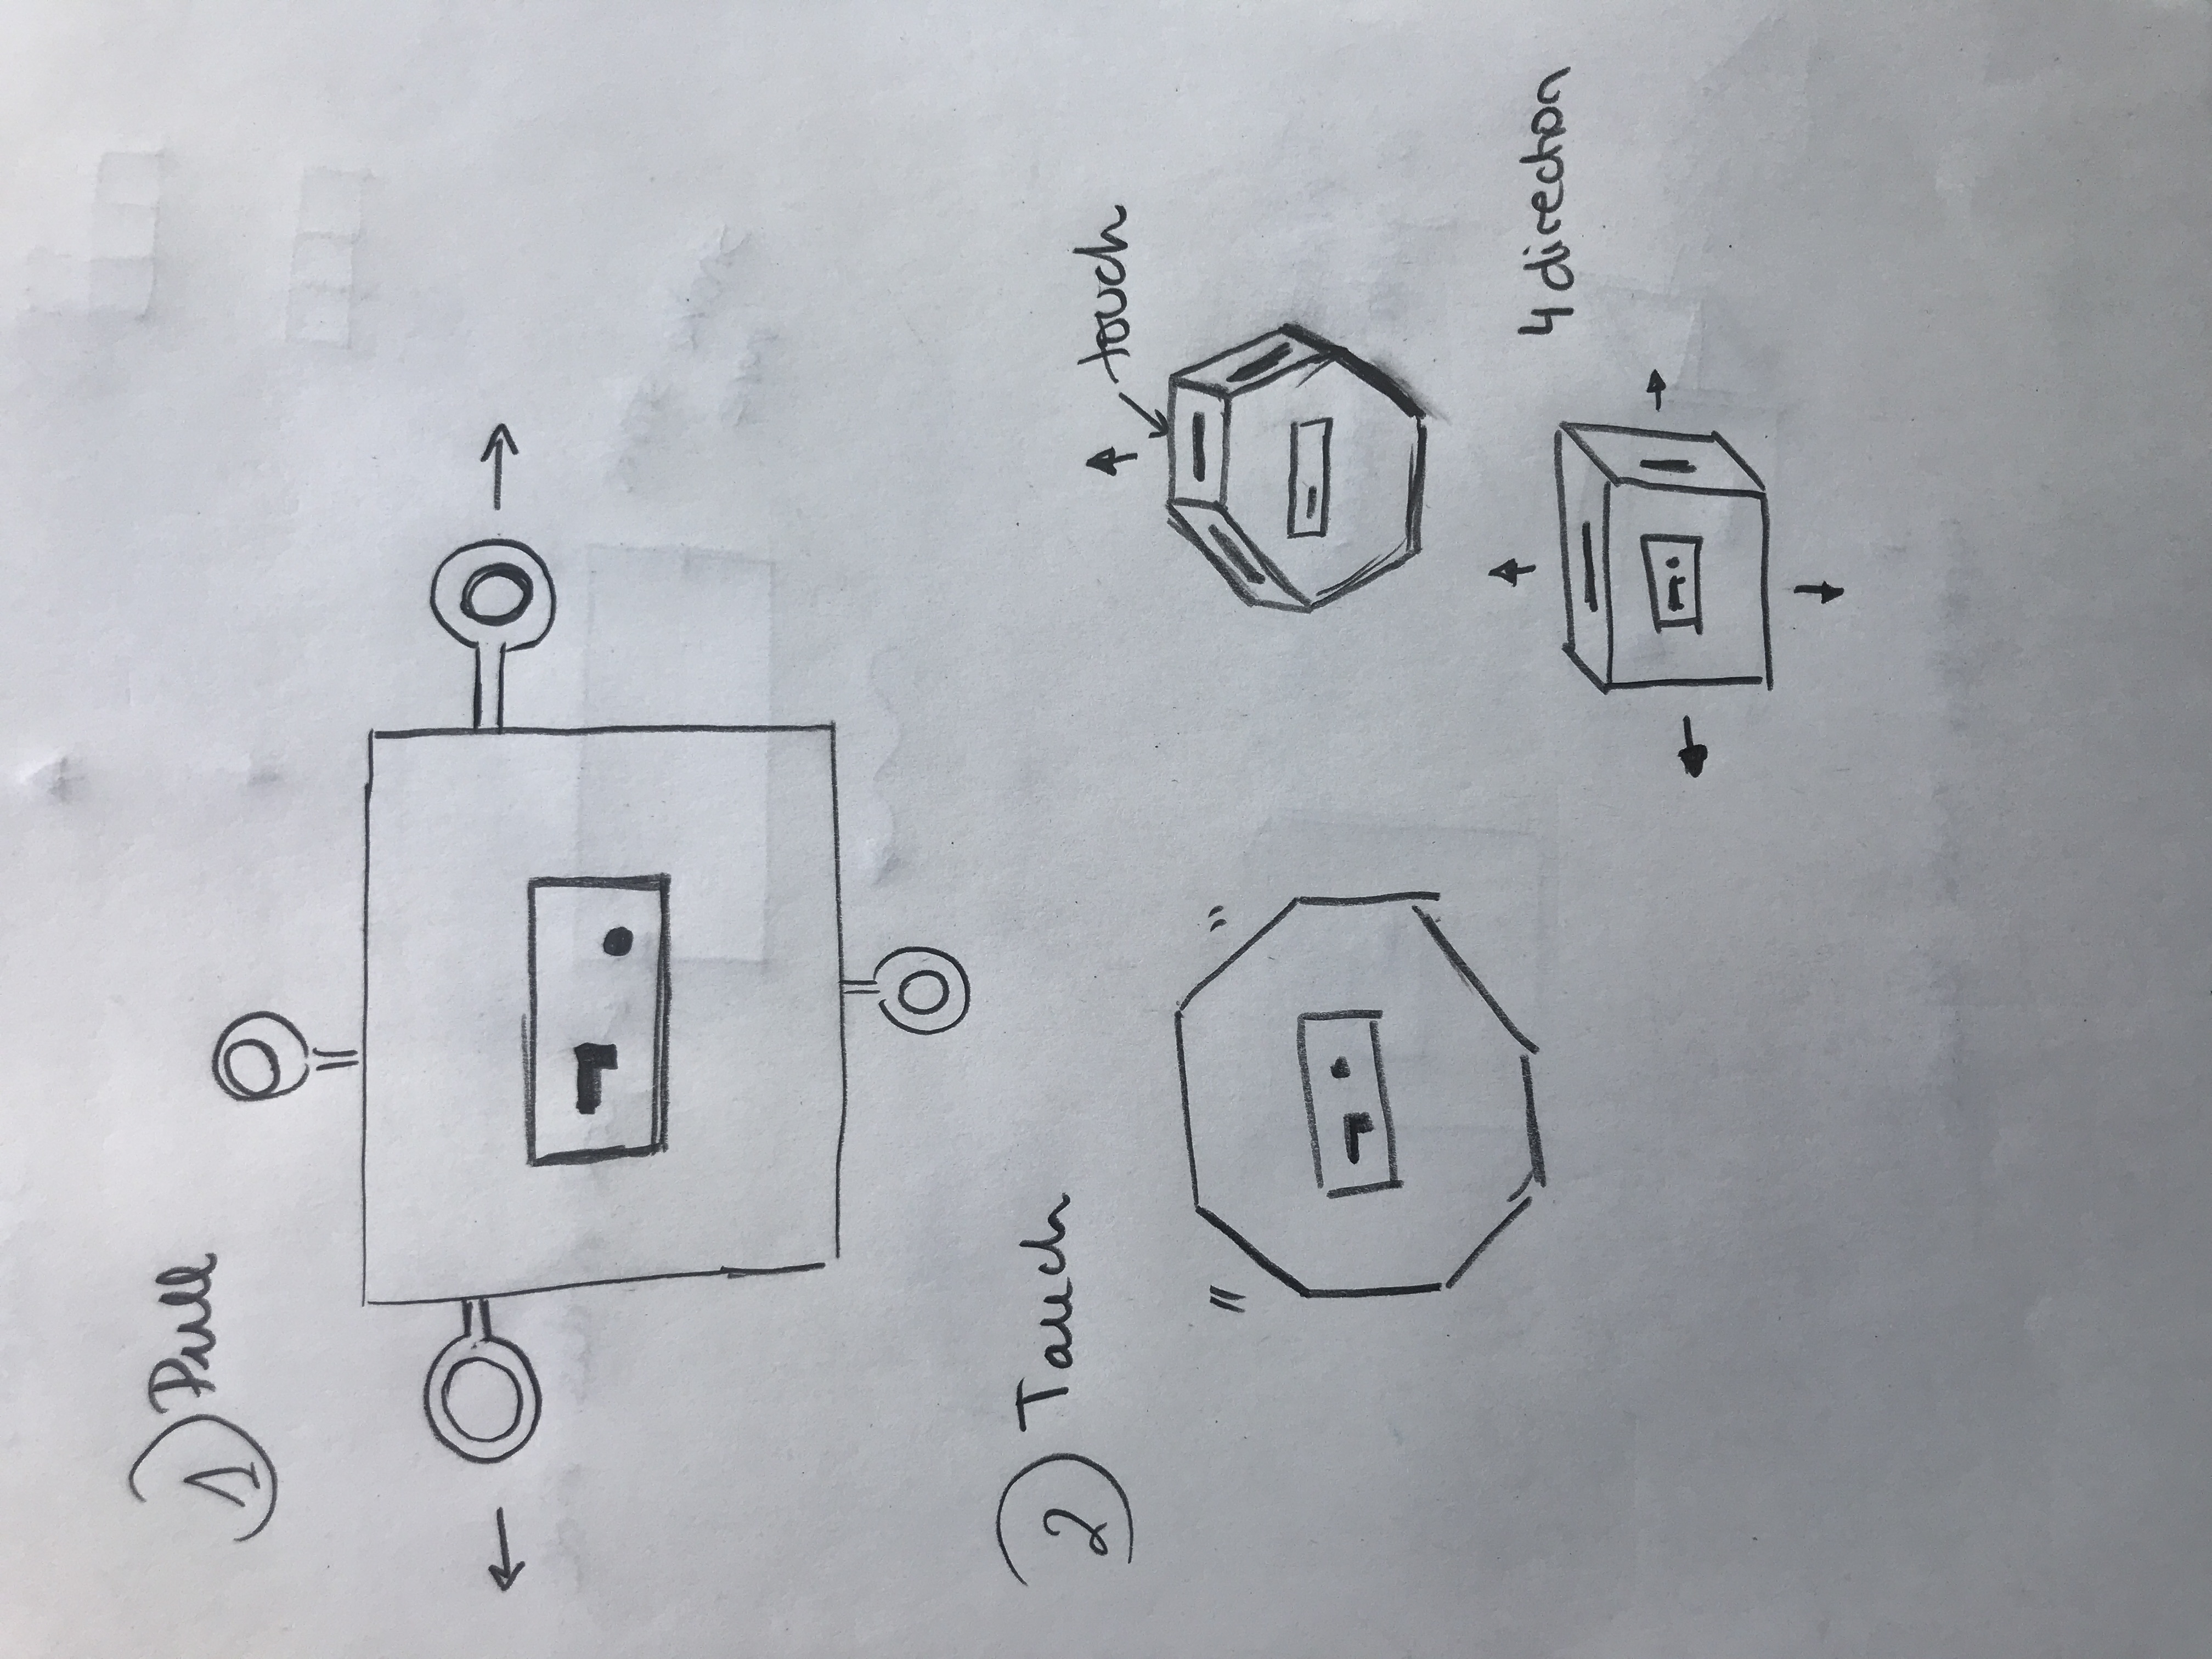 1 Pull
2 Tauch
touch
4 direction